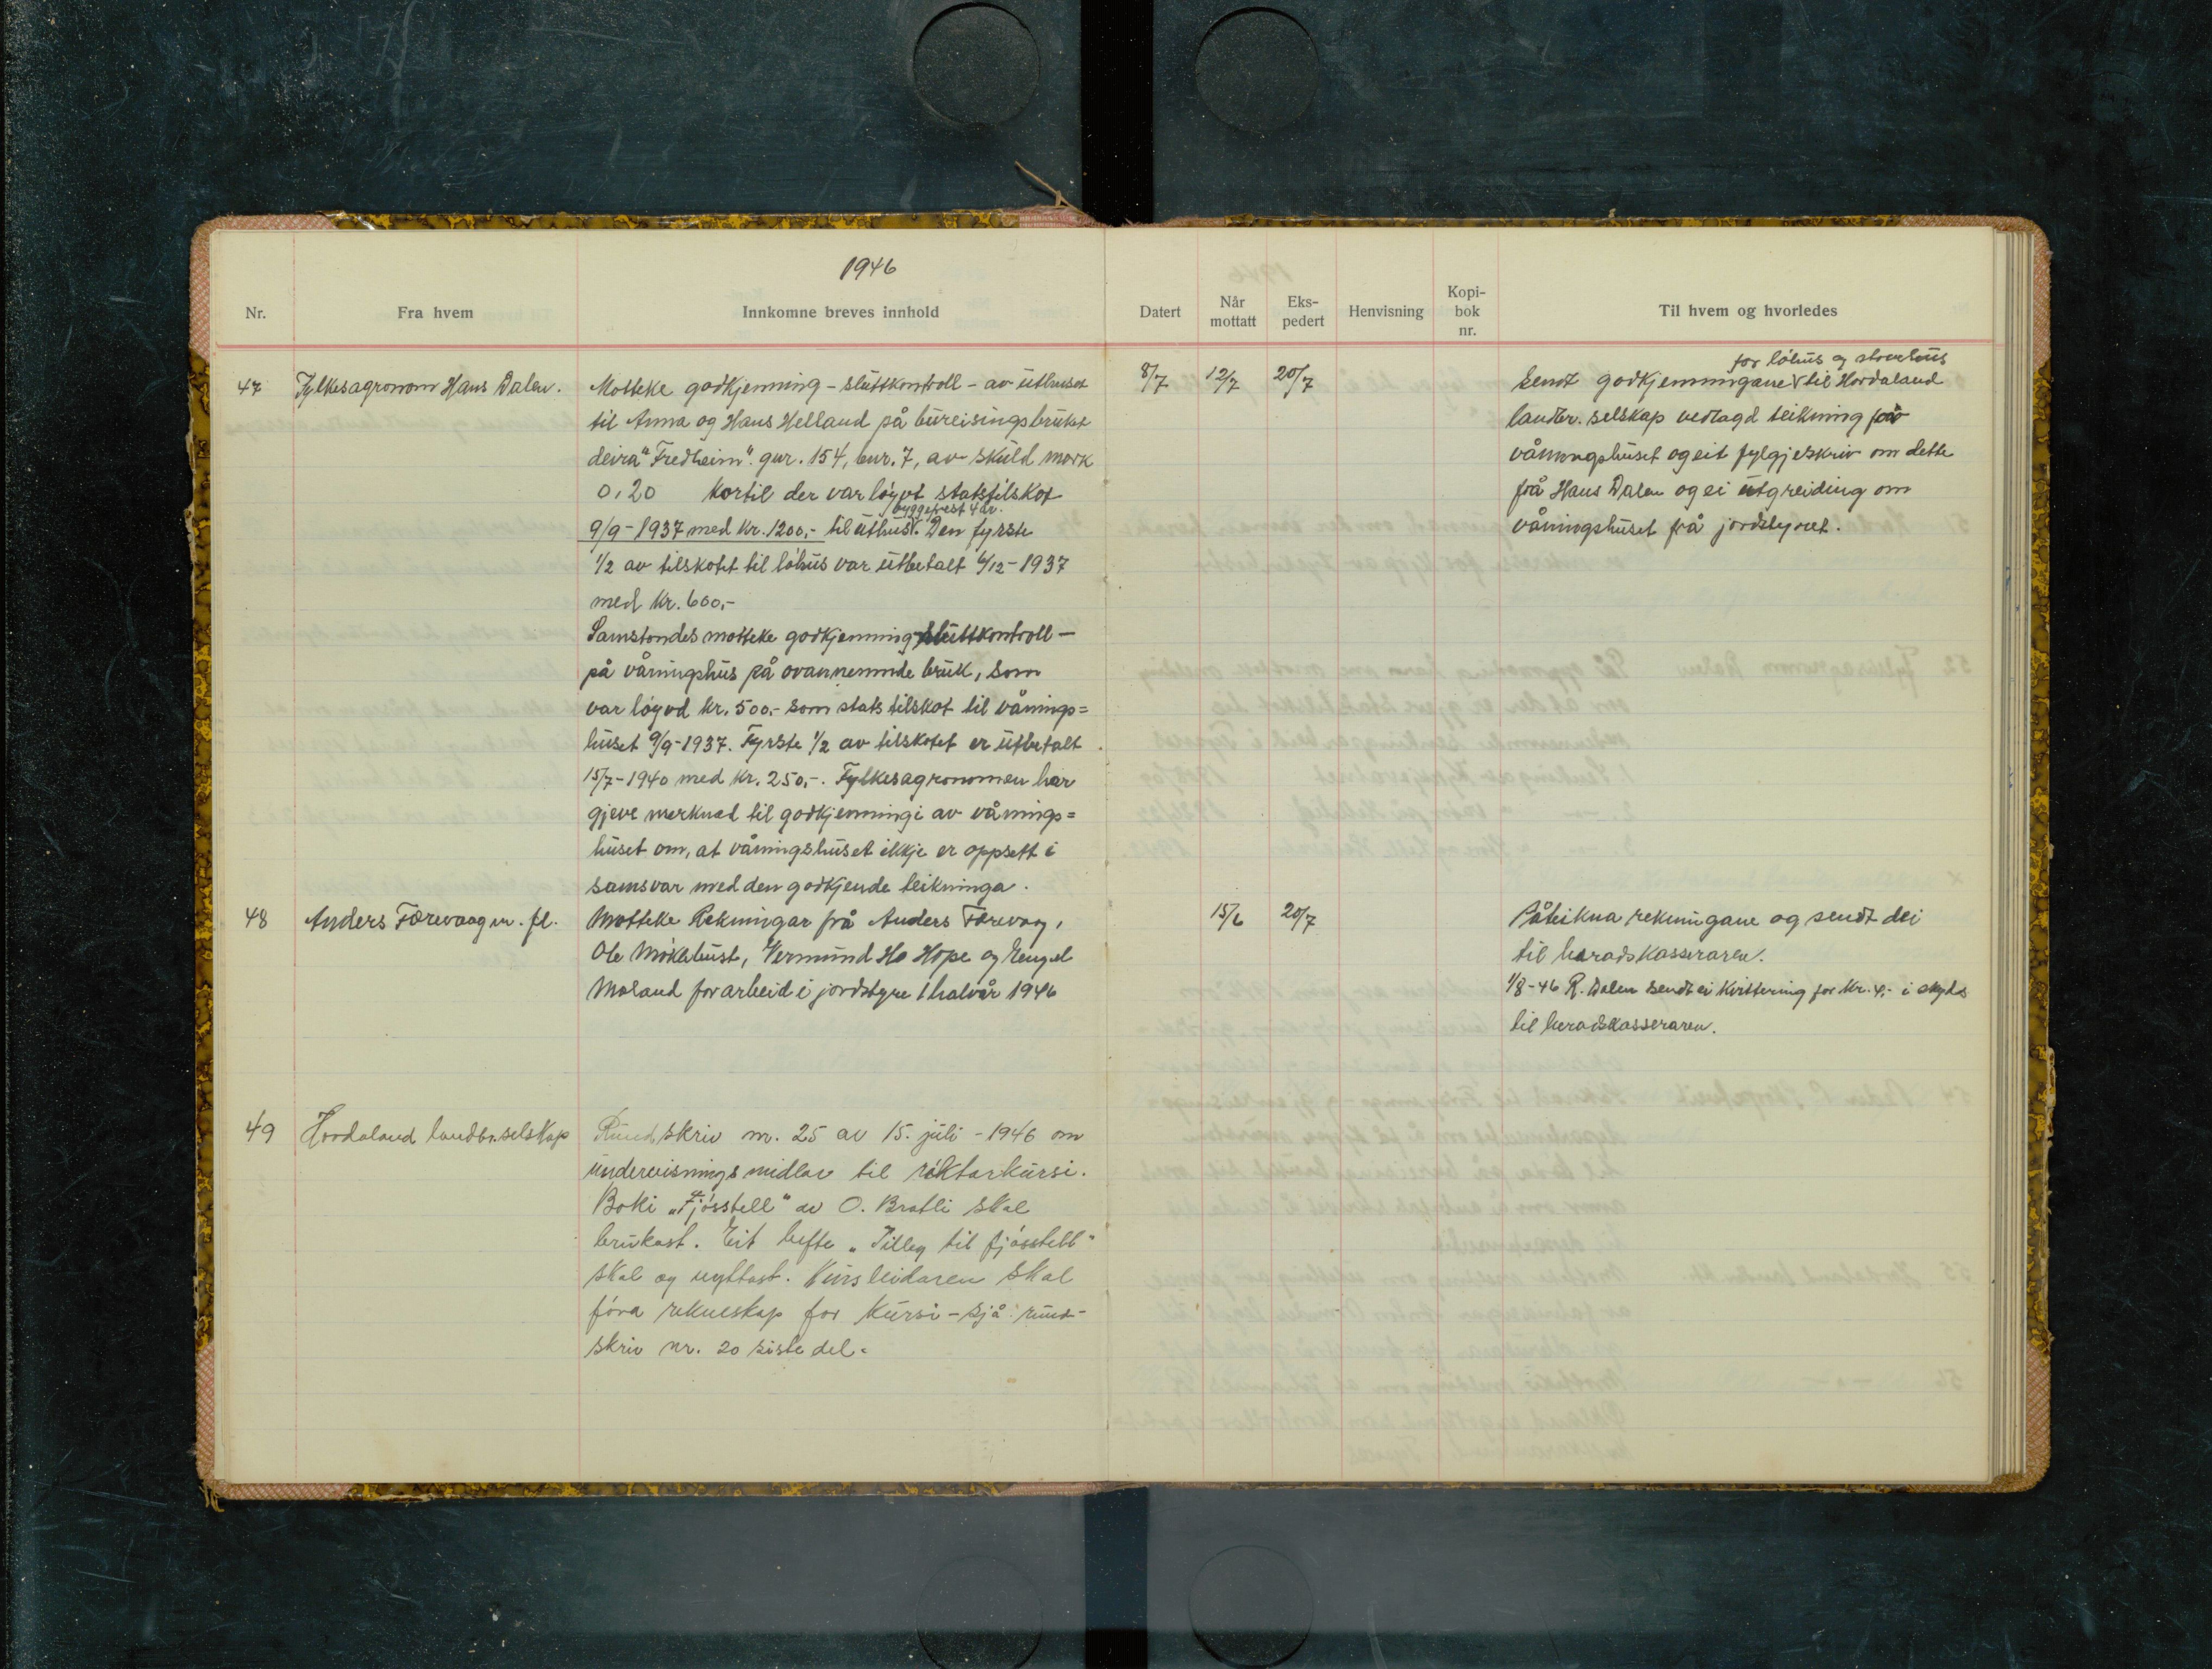 1946
Nr.
Fra hvem
Innkomne breves innhold
47
Fylkesagronom Hans Dalen.
Motteke godkjenning - sluttkontroll - av uthuset
til Anna og Hans Helland på bureisingsbruket
deira "Fredheim". gnr. 154, bnr. 7, av skuld mark
0,20 kortil der var løyvt statstilskot
byggefrest 4 år.
9/9-1937 med kr. 1200,- til uthus. Den fyrste
1/2 av tilskotet til løhus var utbetalt 6/12-1937
med kr. 600,-
Samstondes motteke godkjenning - sluttkontroll -
på våningshus på ovannemnde bruk, som
var løyvd kr. 500,- som stats tilskot til vånings=
huset 9/9-1937. Fyrste 1/2 av tilskotet er utbetalt
15/7-1940 med kr. 250,-. Fylkesagronomen har
gjeve merknad til godkjenningi av vånings=
huset om, at våningshuset ikkje er oppsett i
samsvar med den godkjende teikninga.
48
Anders Færevaag m. fl.
Motteke Rekningar frå Anders Færevag,
Ole Møkkhust, Vermund Ho Hope og Engel
Moland for arbeid i jordstyre 1 halvår 1946
49
Hordaland landbr. selskap
Rundskriv nr. 25 av 15. juli - 1946 om
undervisnings midlar til røktarkursi.
Boki „Fjøsstell" av O. Bratli skal
brukast. Eit hefte „Tilleg til fjøsstell"
skal og nyttast. Kursleidaren skal
føra rekneskap for kursi - sjå rund-
skriv nr. 20 siste del.
Datert
Når mottatt
Eks-pedert
Henvisning
Kopi-bok nr.
Til hvem og hvorledes
8/7
12/7
20/7
for løhus og stovehus
Sendt godkjenningane til Hordaland
landbr. selskap vedlagd teikning på
våningshuset og eit fylgjeskriv om dette
frå Hans Dalen og ei utgreiding om
våningshuset frå jordstyret.
15/6
20/7
Påteikna rekningane og sendt dei
til heradskasseraren.
1/8-46 R. Dalen sendt ei kvittering for kr. 4,- i skyds
til heradskasseraren.